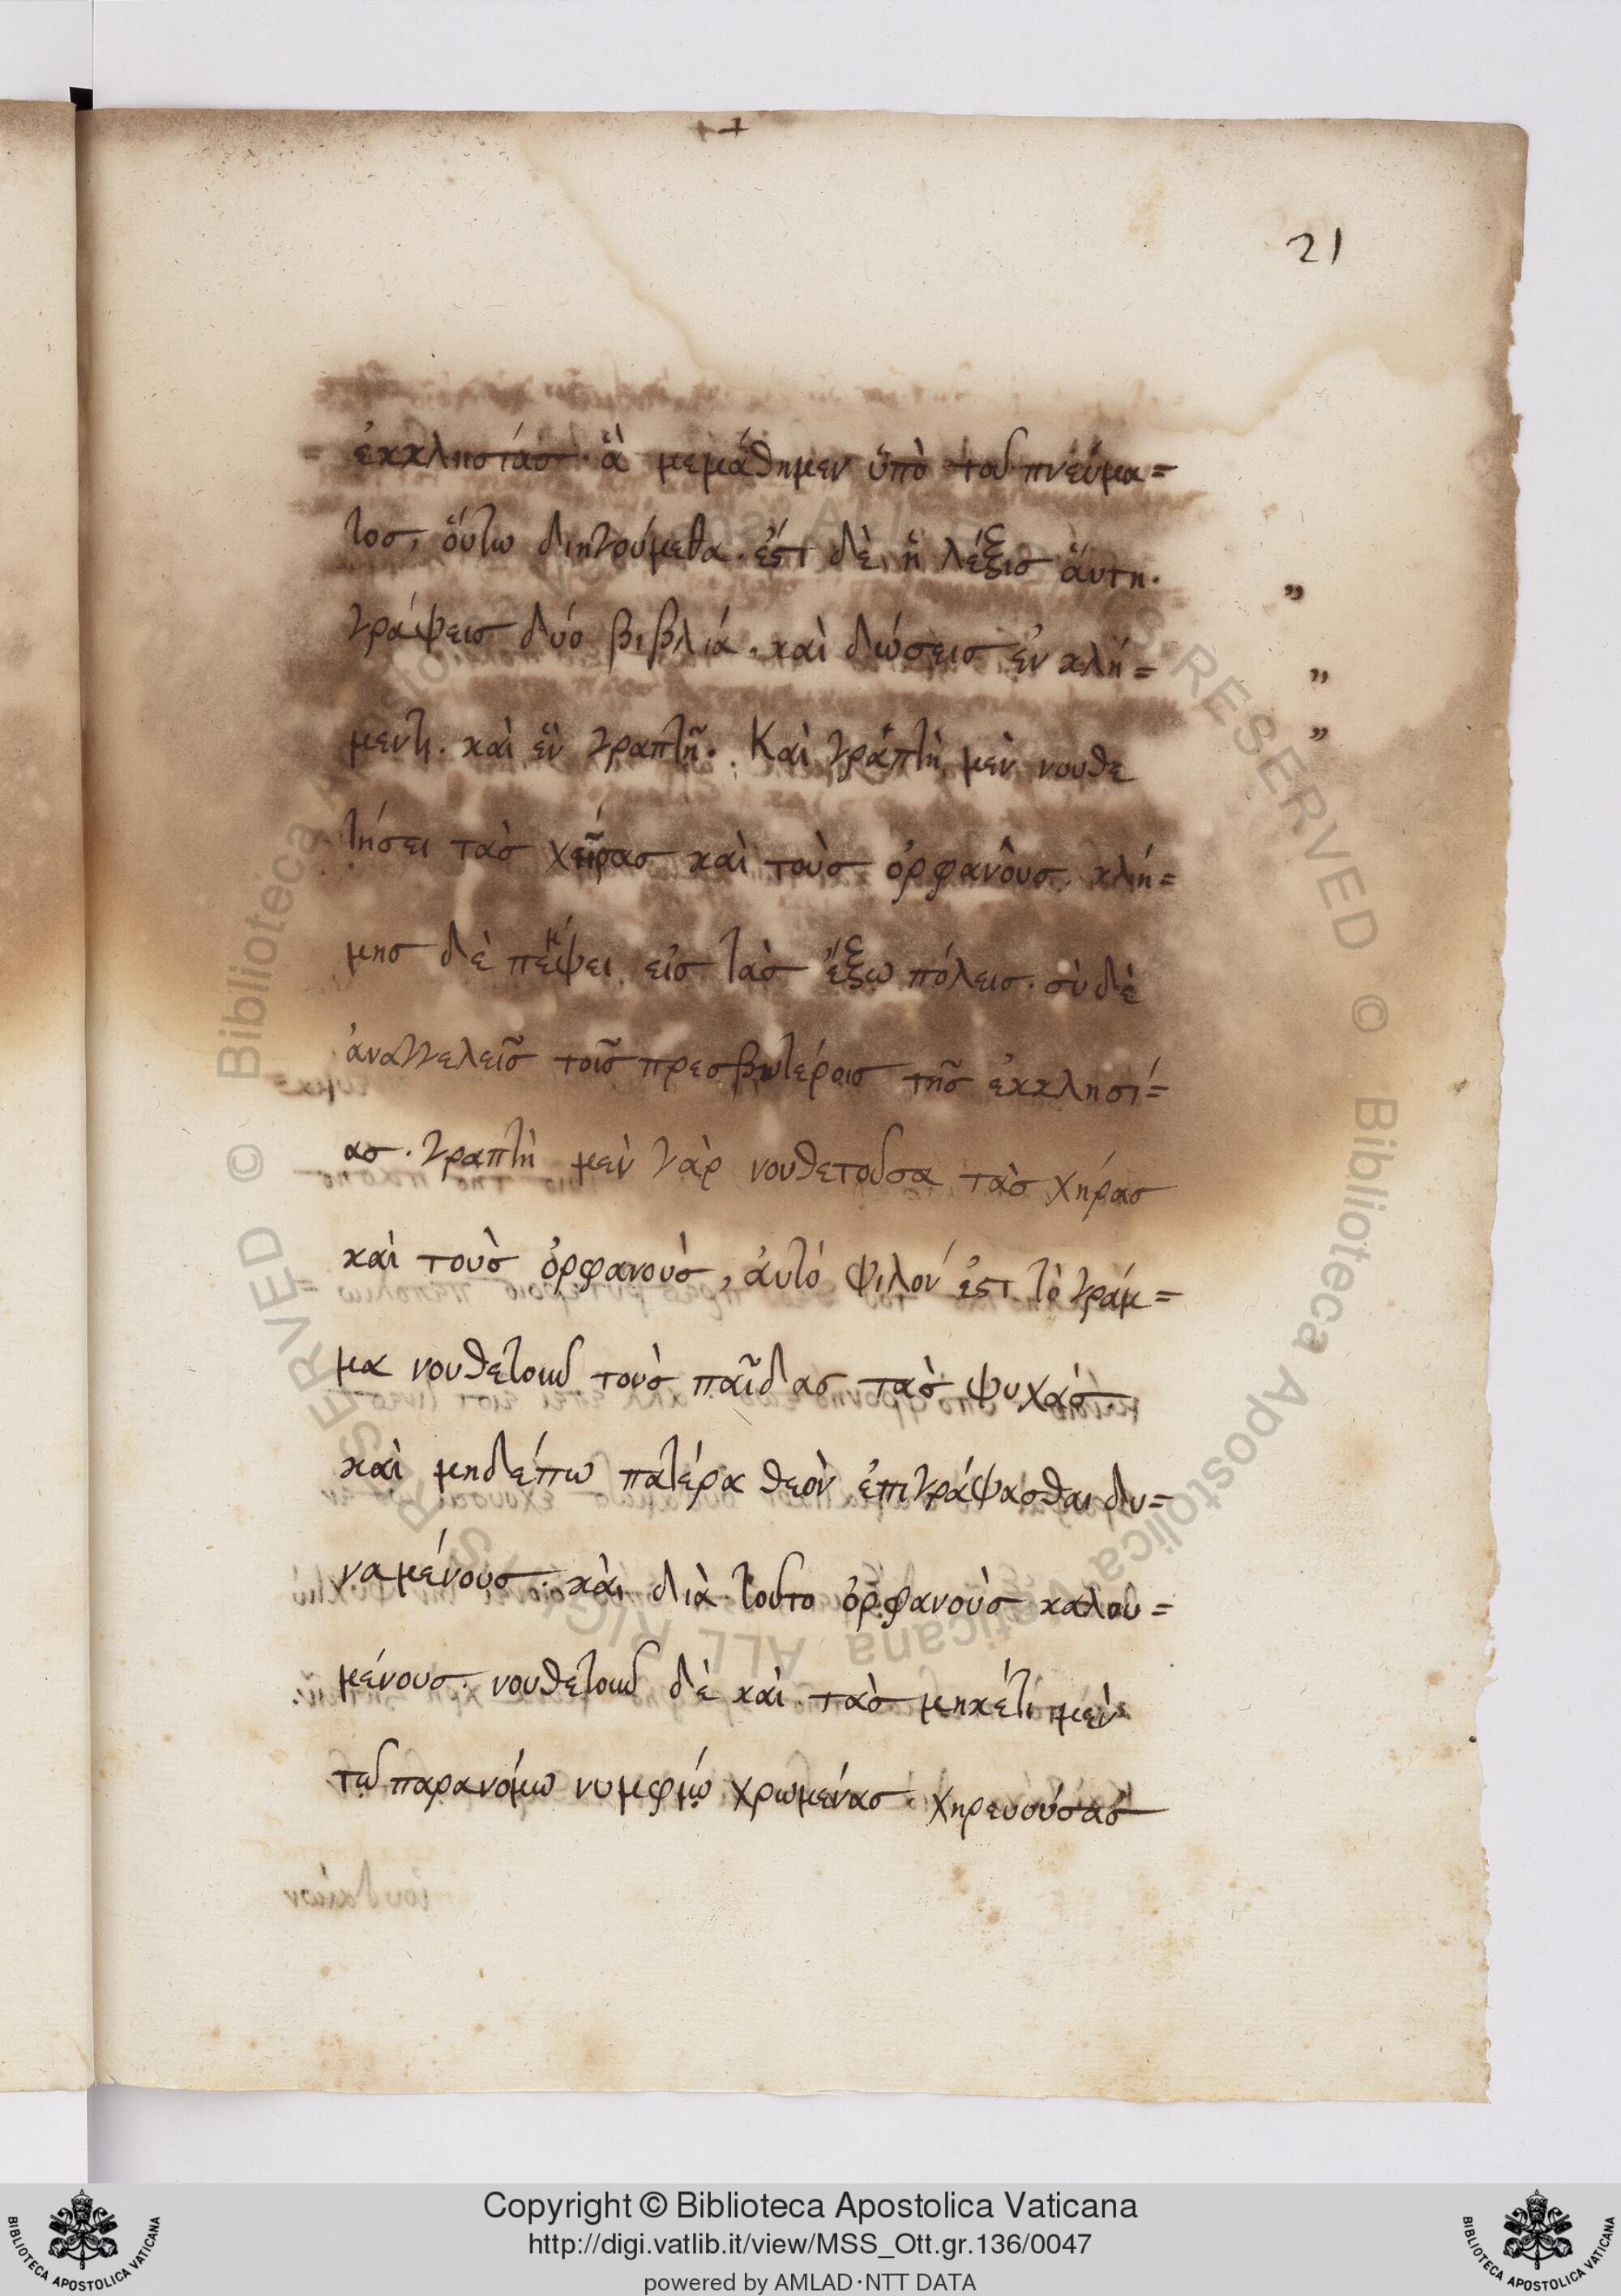 21
ἐκκλησίας. ἃ μεμάθημεν ὑπὸ τοῦ πνεύμα=
τος, ὅυτω διηγούμεθα. ἐστ δὲ, ἡ λέξις ἅυτη.
γράψεις δυό βιβλιά. καὶ δώσεις ἐν κλή=
μεντι. καὶ ἓν γραπτῆ. Καὶ γράπτὴ μὲν νουθε
τήσει τὰς χείρας καὶ τοὺς ὀρφανοὺς. κλή=
μης δὲ πέμψει εἰς τὰς ἔξω πόλεις. σὺ δὲ
ἀναγγελεῖς τοῖς πρεσβυτέροις τῆς ἐκκλησί=
ας. γραπτὴ μὲν γὰρ νουθετοῦσα τὰς χήρας
καὶ τοὺς ὀρφανοὺς, ἀυτό ψιλόν ἐστ τὸ γράμ=
μα νουθετοῦν τοὺς παῖδας τὰς ψυχάς
καὶ μηδέπω πατέρα θεὸν ἐπιγράψασθαι δυ=
ναμένους. καὶ διὰ τοῦτο ὀρφανοὺς καλου=
μένους. νουθετοῦν δὲ καὶ τὰς μηκέτι μὲν
τῶ παρανόμω νυμφίῳ χρωμένας. χηρευούσας
Copyright © Biblioteca Apostolica Vaticana
http://digi.vatlib.it/view/MSS_Ott.gr.136/0047
powered by AMLAD·NTT DATA
BIBLIOTECA APOSTOLICA VATICANA
BIBLIOTECA APOSTOLICA VATICANA